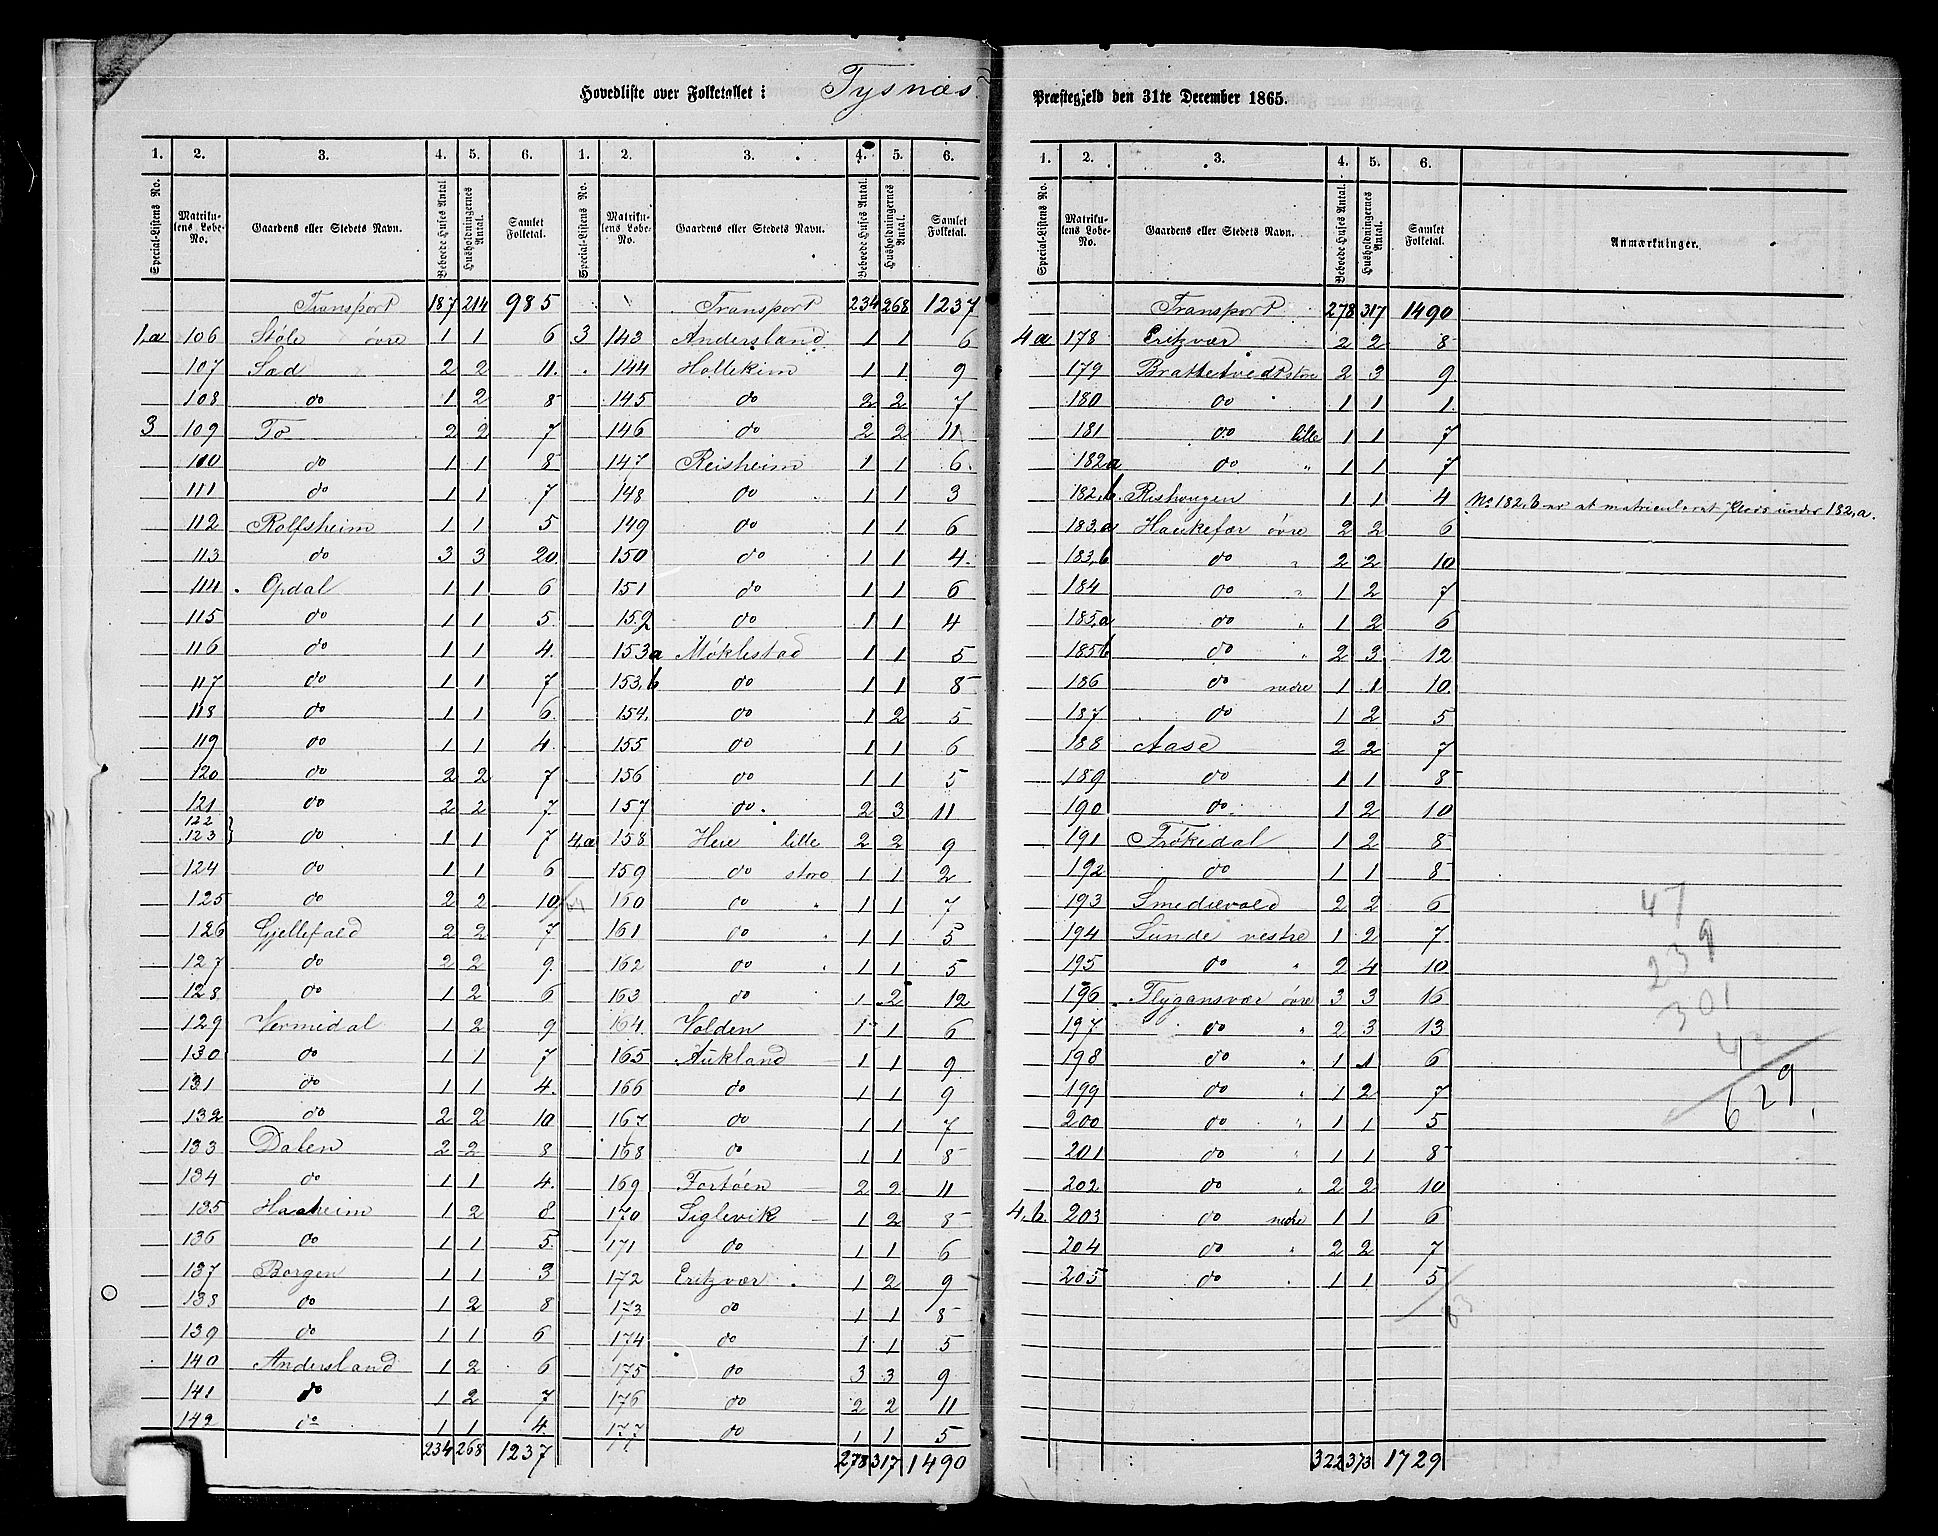 Hovedliste over Folketallet i: Tysnæs Præstegjeld den 31te December 1865.
1. 2. 3. 4. 5. 6. 1. 2. 3. 4. 5. 6.
Special-Listens No. Matrikulens Løbe-No. Gaardens eller Stedets Navn. Beboede Huses Antal Husholdningernes Antal. Samlet Folketal. Special-Listens No. Matrikulens Løbe-No. Gaardens eller Stedets Navn. Beboede Huses Antal. Husholdningernes Antal. Samlet Folketal.
Transport 187 214 985 Transport 234 268 1237
1,a 106 Støle øvre 1 1 6 3 143 Andersland 1 1 6
107 Sad 2 2 11. 144 Hollekim 1 1 9
108 do 1 2 8 145 do 2 2 7
3 109 To 2 2 7 146 do 2 2 11
110 do 1 1 8 147 Reisheim 1 1 6.
111 do 1 1 7 148 do 1 1 3
112 Rolfsheim 1 1 5 149 do 1 1 6
113 do 3 3 20. 150 do 1 1 4.
114 Opdal 1 1 6 151 do 1 1 6
115 do 1 1 5. 152 do 1 1 4
116 do 1 1 4. 153a Møklestad 1 1 5
117 do 1 1 7 153,b do 1 1 8
118 do 1 1 6. 154. do 1 2 5
119 do 1 1 4. 155 do 1 1 6
120 do 2 2 7 156 do 1 1 5
121 do 2 2 7. 157 do. 2 3 11
122
123} do 1 1 7 4,a 158 Heie lille 2 2 9
124 do 1 1 6 159 do store 1 1 2
125 do 2 2 10 160 do " 1 1 7
126 Gjellefald 2 2 7 161 do " 1 1 5.
127 do 2 2 9. 162 do " 1 1 5
128 do 1 2 6 163 do 1 2 12
129 Vermedal 1 2 9 164. Volden 1 1 6
130 do 1 1 7 165 Aukland 1 1 9
131 do 1 1 4. 166 do 1 1 9
132 do 2 2 10 167 do 1 1 7
133 Dalen 2 2 8 168 do 1 1 8
134 do 1 1 4. 169 Fortøen 2 2 11
135 Haaheim 1 2 8 170 Siglevik 1 2 8
136 do 1 1 5. 171 do 1 1 6
137 Borgen 1 1 3 172 Eritzvær 1 2 9
138 do 1 2 8 173 do 1 1 8
139 do 1 1 6 174 do 1 1 5
140 Andersland 1 2 6 175 do 3 3 9
141 do 1 2 7 176 do 2 2 11
142 do 1 1 4. 177 do 1 1 5
234 268 1237 278 317 1490
1. 2. 3. 4. 5. 6.
Special-Listens No. Matrikulens Løbe-No. Gaardens eller Stedets Navn. Beboede Huses Antal. Husholdningernes Antal. Samlet Folketal. Anmærkninger.
Transport 278 317 1490
4a 178 Eritzvær 2 2 8
179 Brattetvedt store 2 3 9
180 do 1 1 1.
181 do lille 1 1 7
182a do " 1 1 7
182,b. Rishougen 1 1 4 No 182,b er at matriculeret Plads under 182,a.
183,a Haukefær øvre 2 2 6
183,b do " 2 2 10
184 do " 1 2 7
185,a do " 1 2 6
185b do " 2 3 12
186 do nedre 1 1 10.
187 do 1 2 5
188 Aase 2 2 7
189 do 1 1 8
190 do 1 2 10
191 Frøkedal 1 2 8
192 do 1 1 8
193 Smedievold 2 2 6 47
194 Sunde vestre 1 2 7 239
195 do " 2 4 10
196 Flygansvær øvre 3 3 16 301
197 do " 2 3 13
198 do " 1 1 6
199 do " 1 2 7 629.
200 do " 1 1 5
201 do " 1 1 8
202 do " 2 2 10
4,b. 203 do nedre 1 1 6
204 do " 2 2 7
205 do " 1 1 5
322 373 1729